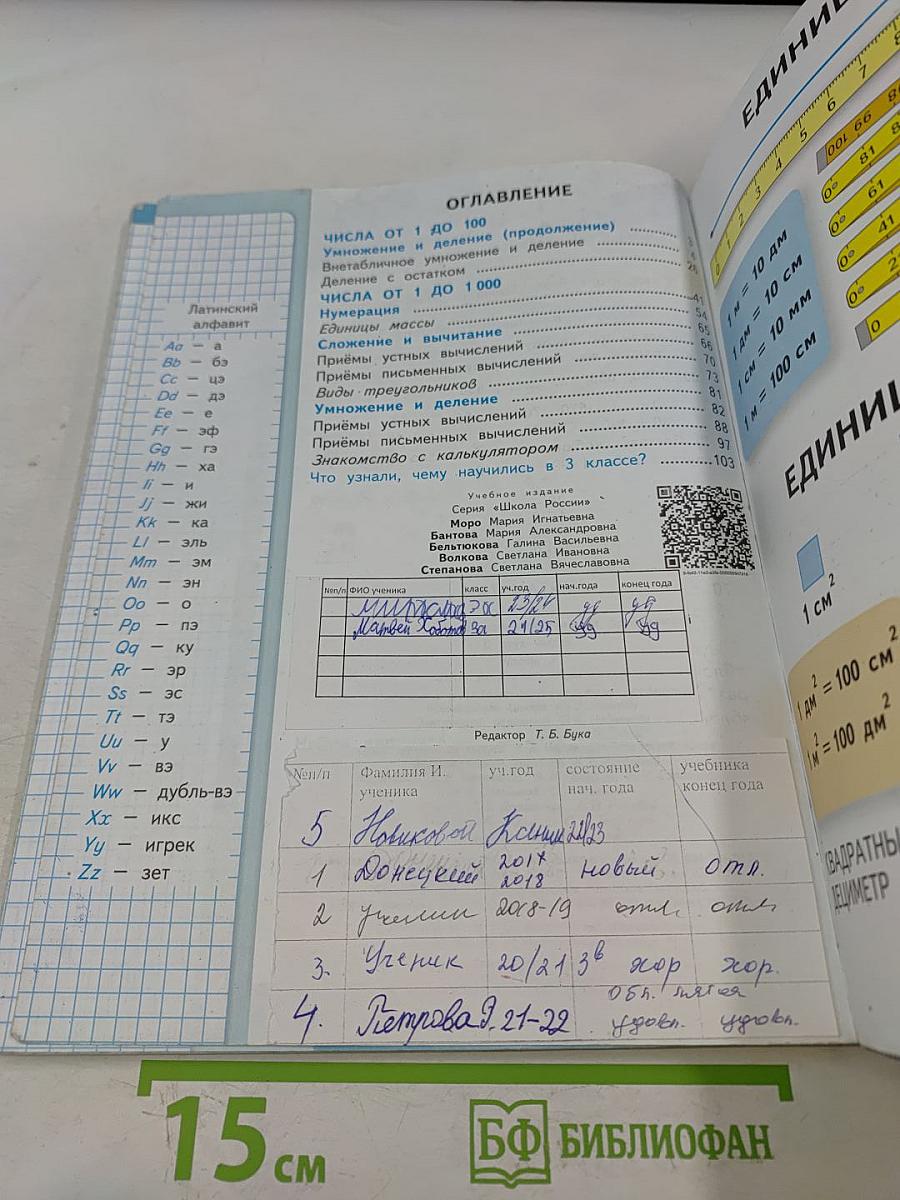 Латинский
алфавит
Aa — а
Bb — бэ
Cc — цэ
Dd — дэ
Ee — е
Ff — эф
Gg — гэ
Hh — ха
Ii — и
Jj — жи
Kk — ка
Ll — эль
Mm — эм
Nn — эн
Oo — о
Pp — пэ
Qq — ку
Rr — эр
Ss — эс
Tt — тэ
Uu — у
Vv — вэ
Ww — дубль-вэ
Xx — икс
Yy — игрек
Zz — зет
ОГЛАВЛЕНИЕ
ЧИСЛА ОТ 1 ДО 100
Умножение и деление (продолжение) 3
Внетабличное умножение и деление 4
Деление с остатком 26
ЧИСЛА ОТ 1 ДО 1 000
Нумерация 41
Единицы массы 54
Сложение и вычитание 65
Приёмы устных вычислений 66
Приёмы письменных вычислений 70
Виды треугольников 73
Умножение и деление 81
Приёмы устных вычислений 82
Приёмы письменных вычислений 88
Знакомство с калькулятором 97
Что узнали, чему научились в 3 классе? 103
Учебное издание
Серия «Школа России»
Моро Мария Игнатьевна
Бантова Мария Александровна
Бельтюкова Галина Васильевна
Волкова Светлана Ивановна
Степанова Светлана Вячеславовна
№п/п ФИО ученика класс уч.год нач.года конец года
23/24 уд уд
Матвей 3а 24/25 уд уд
Редактор Т. Б. Бука
№п/п Фамилия И. ученика уч.год состояние нач. года учебника конец года
5 Новиковой Ксении 22/23
1 Донецкий 2017 2018 новый отл.
2 ученик 2018-19 отл. отл
3. Ученик 20/21 3в хор хор.
4. Петрова 21-22 удовл. удовл.
ЕДИНИЦ
0 1 2 3 4 5 6 7 8
1 м = 10 дм
1 дм = 10 см
1 см = 10 мм
1 м = 100 см
ЕДИНИЦ
1 см²
1 дм² = 100 см²
1 м² = 100 дм²
КВАДРАТНЫ
ДЕЦИМЕТР
15 см
БФ БИБЛИОФАН